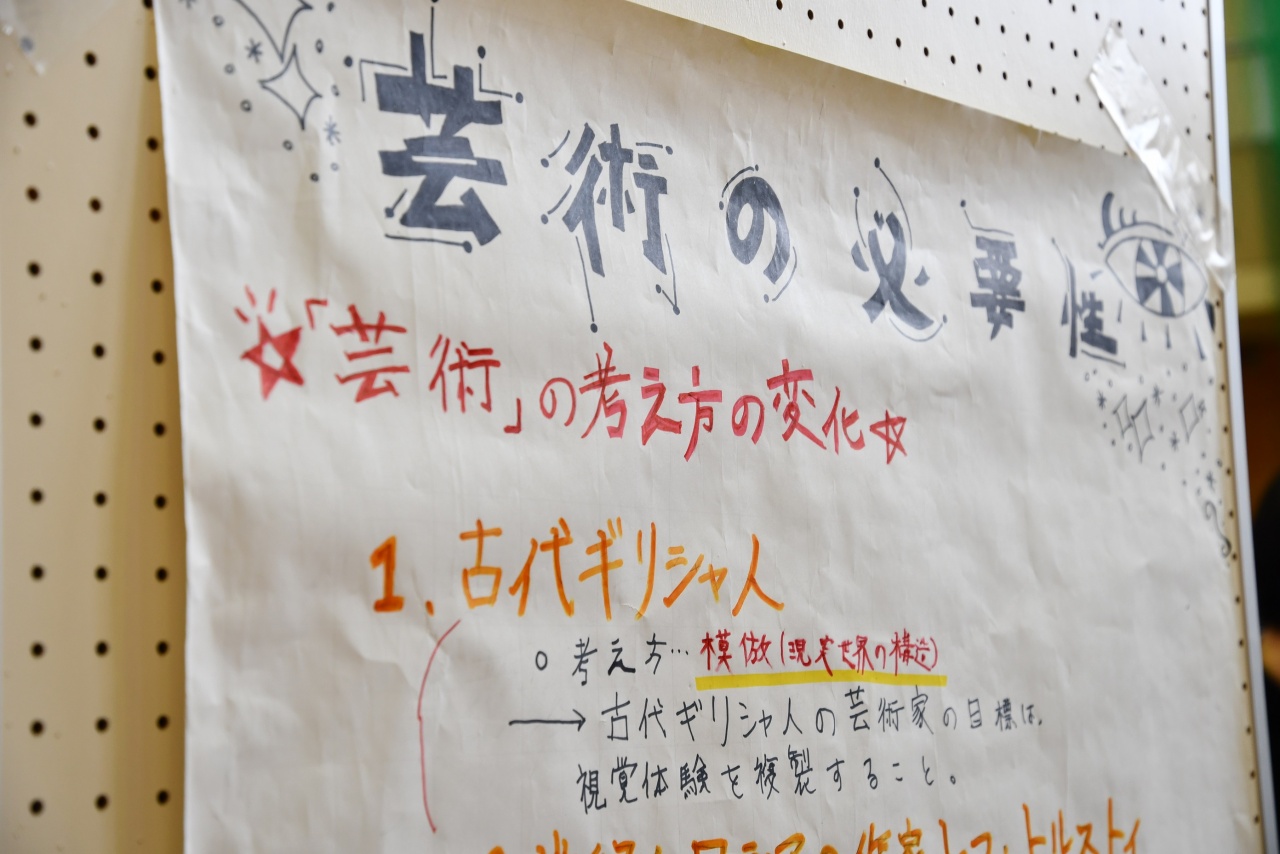 芸術の必要性
☆「芸術」の考え方の変化☆
1. 古代ギリシャ人
○ 考え方… 模倣(現実世界の構造)
→ 古代ギリシャ人の芸術家の目標は、
視覚体験を複製すること。
ロシアの作家レフ・トルストイ